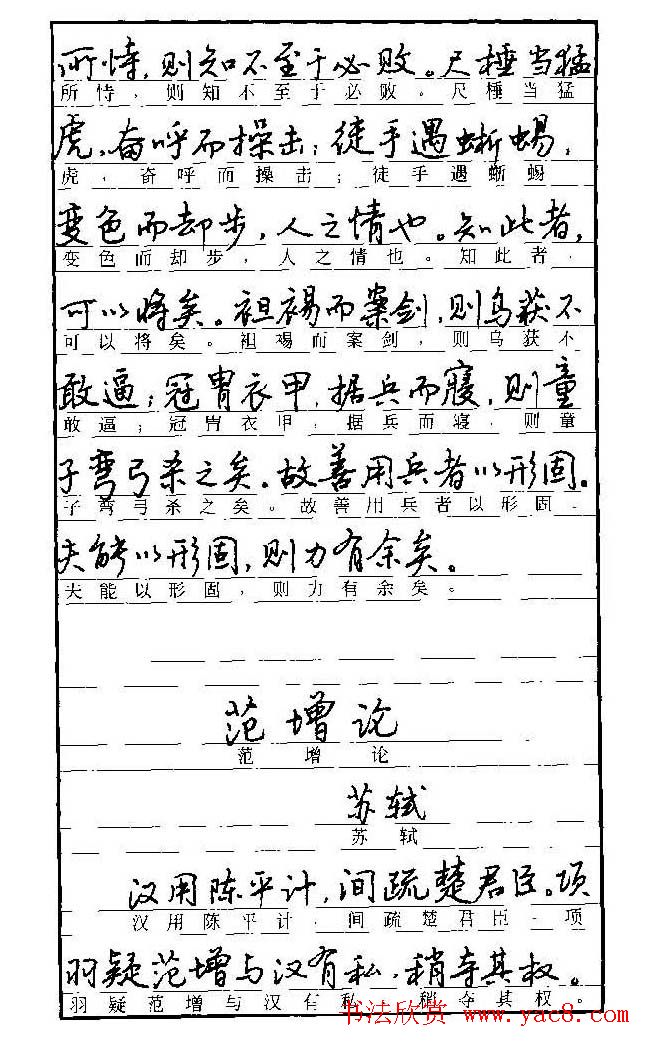 所恃，则知不至于必败。尺棰当猛
所恃，则知不至于必败。尺棰当猛
虎，奋呼而操击；徒手遇蜥蜴，
虎，奋呼而操击；徒手遇蜥蜴
变色而却步，人之情也。知此者，
变色而却步，人之情也。知此者，
可以将矣。袒裼而案剑，则乌获不
可以将矣。袒裼而案剑，则乌获不
敢逼；冠胄衣甲，据兵而寝，则童
敢逼；冠胄衣甲，据兵而寝，则童
子弯弓杀之矣。故善用兵者以形固。
子弯弓杀之矣。故善用兵者以形固。
夫能以形固，则力有余矣。
夫能以形固，则力有余矣。
范增论
范增论
苏轼
苏轼
汉用陈平计，间疏楚君臣。项
汉用陈平计，间疏楚君臣。项
羽疑范增与汉有私，稍夺其权。
羽疑范增与汉有私，稍夺其权。
书法欣赏 www.yac8.com